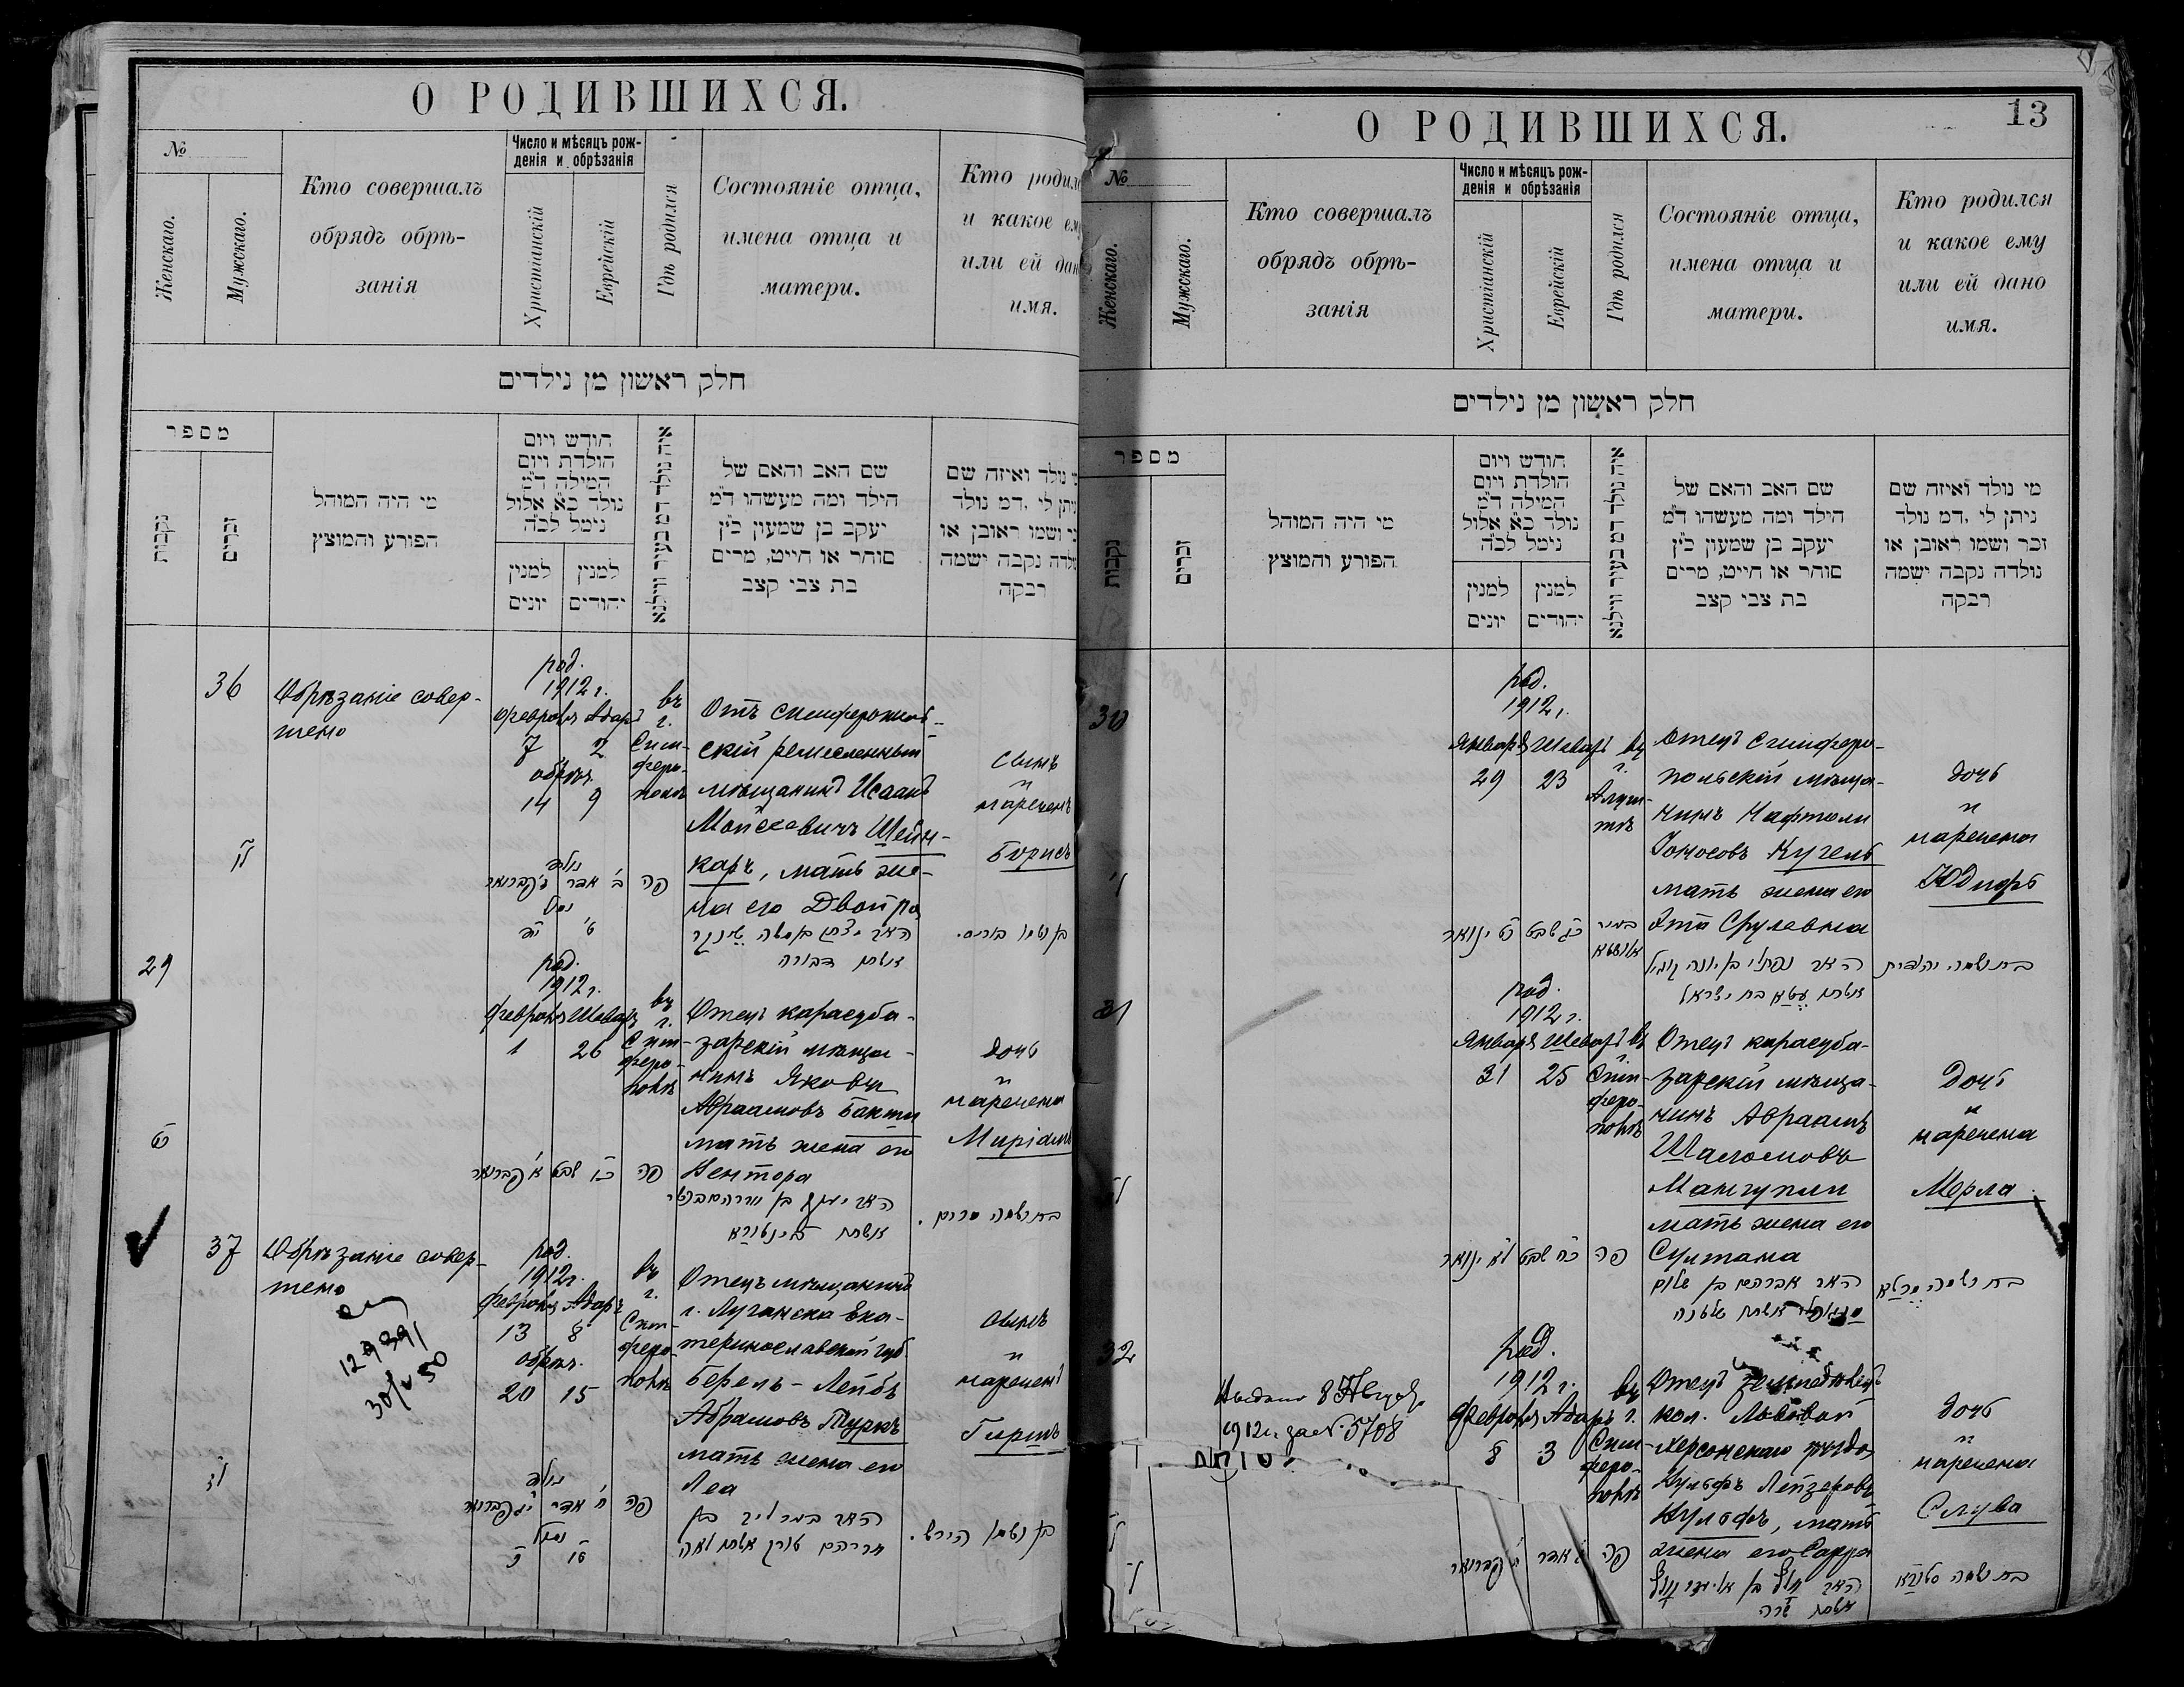 О РОДИВШИХСЯ.
№
Женскаго.
Мужскаго.
Кто совершалъ
обрядъ обрѣ-
занія
Число и мѣсяцъ рож-
денія и обрѣзанія
Христіанскій
Еврейскій
Гдѣ родился
Состояніе отца,
имена отца и
матери.
Кто родил
и какое ем
или ей дан
имя.
חלק ראשון מן נילדים
מספר
נקבות
זכרים
מי היה המוהל
הפורע והמוצץ
חודש ויום
הולדת ויום
המילה ד״מ
נולד כ״א אלול
נימל לכ״ה
למנין
יונים
למנין
יהודים
איה נולד דמ בעיר ווילנא
שם האב והאם של
הילד ומה מעשהו ד״מ
יעקב בן שמעון כ״ץ
סוחר או חייט, מרים
בת צבי קצב
נולד ואיזה שם
ניתן לי .דמ נולד
ושמו ראובן או
נולדה נקבה ישמה
רבקה
36
Обрѣзаніе совер-
шено
род.
1912 г.
Февраля Адаръ
7 2
обрѣз.
14 9
въ
г.
Сим-
феро-
полѣ
Отъ симферополь-
скій ремесленный
мѣщанинъ Исаакъ
Мойсеевичъ Шейн-
каръ, мать же-
на его Двойра
сынъ
и
нареченъ
Борисъ
נולד
ב׳ אדר ז׳ פברואר
נמול
פה
אשתו דבורה
בן ושמו בוריס.
29
род.
1912 г.
Февраля Шеватъ
1 26
въ
г.
Сим-
феро-
полѣ
Отецъ карасуба-
зарскій мѣща-
нинъ Яковъ
Авраамовъ Бакши
мать жена его
Вентора
дочь
и
наречена
Миріамъ
פה
בת ושמה מרים.
37
Обрѣзаніе совер-
шено
129391
30/V 50
род.
1912 г.
Февраля Адаръ
13 8
обрѣз.
20 15
въ
г.
Сим-
феро-
полѣ
Отецъ мѣщанинъ
г. Луганска Ека-
теринославской губ.
Берель-Лейбъ
Абрамовъ Туркъ
мать жена его
Леа
сынъ
и
нареченъ
Гиршъ
נולד
ח׳ אדר י״ג פברואר
נמול
פה
אברהם טורק אשתו לאה
בן ושמו הירש.
13
О РОДИВШИХСЯ.
№
Женскаго.
Мужскаго.
Кто совершалъ
обрядъ обрѣ-
занія
Число и мѣсяцъ рож-
денія и обрѣзанія
Христіанскій
Еврейскій
Гдѣ родился
Состояніе отца,
имена отца и
матери.
Кто родился
и какое ему
или ей дано
имя.
חלק ראשון מן נילדים
מספר
נקבות
זכרים
מי היה המוהל
הפורע והמוצץ
חודש ויום
הולדת ויום
המילה ד״מ
נולד כ״א אלול
נימל לכ״ה
למנין
יונים
למנין
יהודים
איה נולד דמ בעיר ווילנא
שם האב והאם של
הילד ומה מעשהו ד״מ
יעקב בן שמעון כ״ץ
סוחר או חייט, מרים
בת צבי קצב
מי נולד ואיזה שם
ניתן לי .דמ נולד
זכר ושמו ראובן או
נולדה נקבה ישמה
רבקה
30
род.
1912 г.
Января Шеватъ
29 23
въ
г.
Алуш-
тѣ
Отецъ Симферо-
польскій мѣща-
нинъ Нафтоли
Іоносовъ Кугель
мать жена его
Эта Срулевна
дочь
и
наречена
Юдифь
כ״ג שבט כ״ט ינואר
האב נפתלי בן יונה קוגיל
אשתו עטא בת ישראל
בת ושמה יהודית
31
род.
1912 г.
Января Шеватъ
31 25
въ
г.
Сим-
феро-
полѣ
Отецъ карасуба-
зарскій мѣща-
нинъ Авраамъ
Шаломовъ
Мангупли
мать жена его
Султана
дочь
и
наречена
Мерла
כ״ה שבט ל״א ינואר
פה
האב אברהם בן שלום
32
Выдано 8 Август.
1912 г. за № 5708
род.
1912 г.
Февраля Адаръ
8 3
въ
г.
Сим-
феро-
полѣ
Отецъ земледѣлецъ
кол. Львовой
Херсонскаго уѣзда
Вульфъ Лейзеровъ
Вульфъ, мать
жена его Сарра
дочь
и
наречена
Слува
פה
אשתו שרה